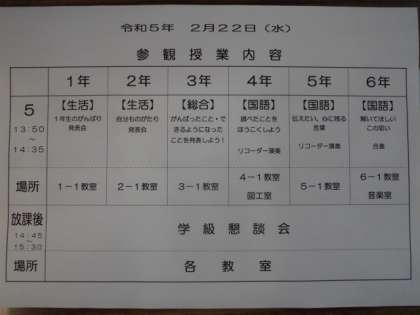 令和5年 2月22日(水)
参観授業内容
1年 2年 3年 4年 5年 6年
5
13:50
~
14:35
【生活】
1年生のがんばり
発表会
【生活】
自分ものがたり
発表会
【総合】
がんばったこと・で
きるようになった
ことを発表しよう!
【国語】
調べたことを
ほうこくしよう
リコーダー演奏
【国語】
伝えたい、心に残る
言葉
リコーダー演奏
【国語】
聞いてほしい
この思い
合奏
場所
1-1教室
2-1教室
3-1教室
4-1教室
図工室
5-1教室
6-1教室
音楽室
放課後
14:45
~
15:30
学級懇談会
場所
各教室